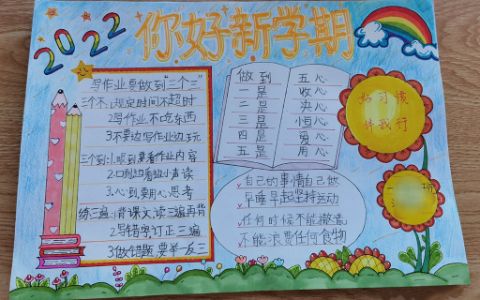 2022
你好新学期
写作业要做到"三个三"
三个不1.规定时间不超时
2写作业不吃东西
3不要边写作业边玩
三个到1.眼到要看作业内容
2口到要小声读
3.心到要用心思考
练三遍1背课文读三遍再背
2写错字订正三遍
3做错题要举一反三
做到 五心
一是 收心
二是 决心
三是 恒心
四是 爱心
五是 用心
自己的事情自己做
早睡早起坚持运动
任何时候不能撒谎
不能浪费任何食物
好习惯
伴我行